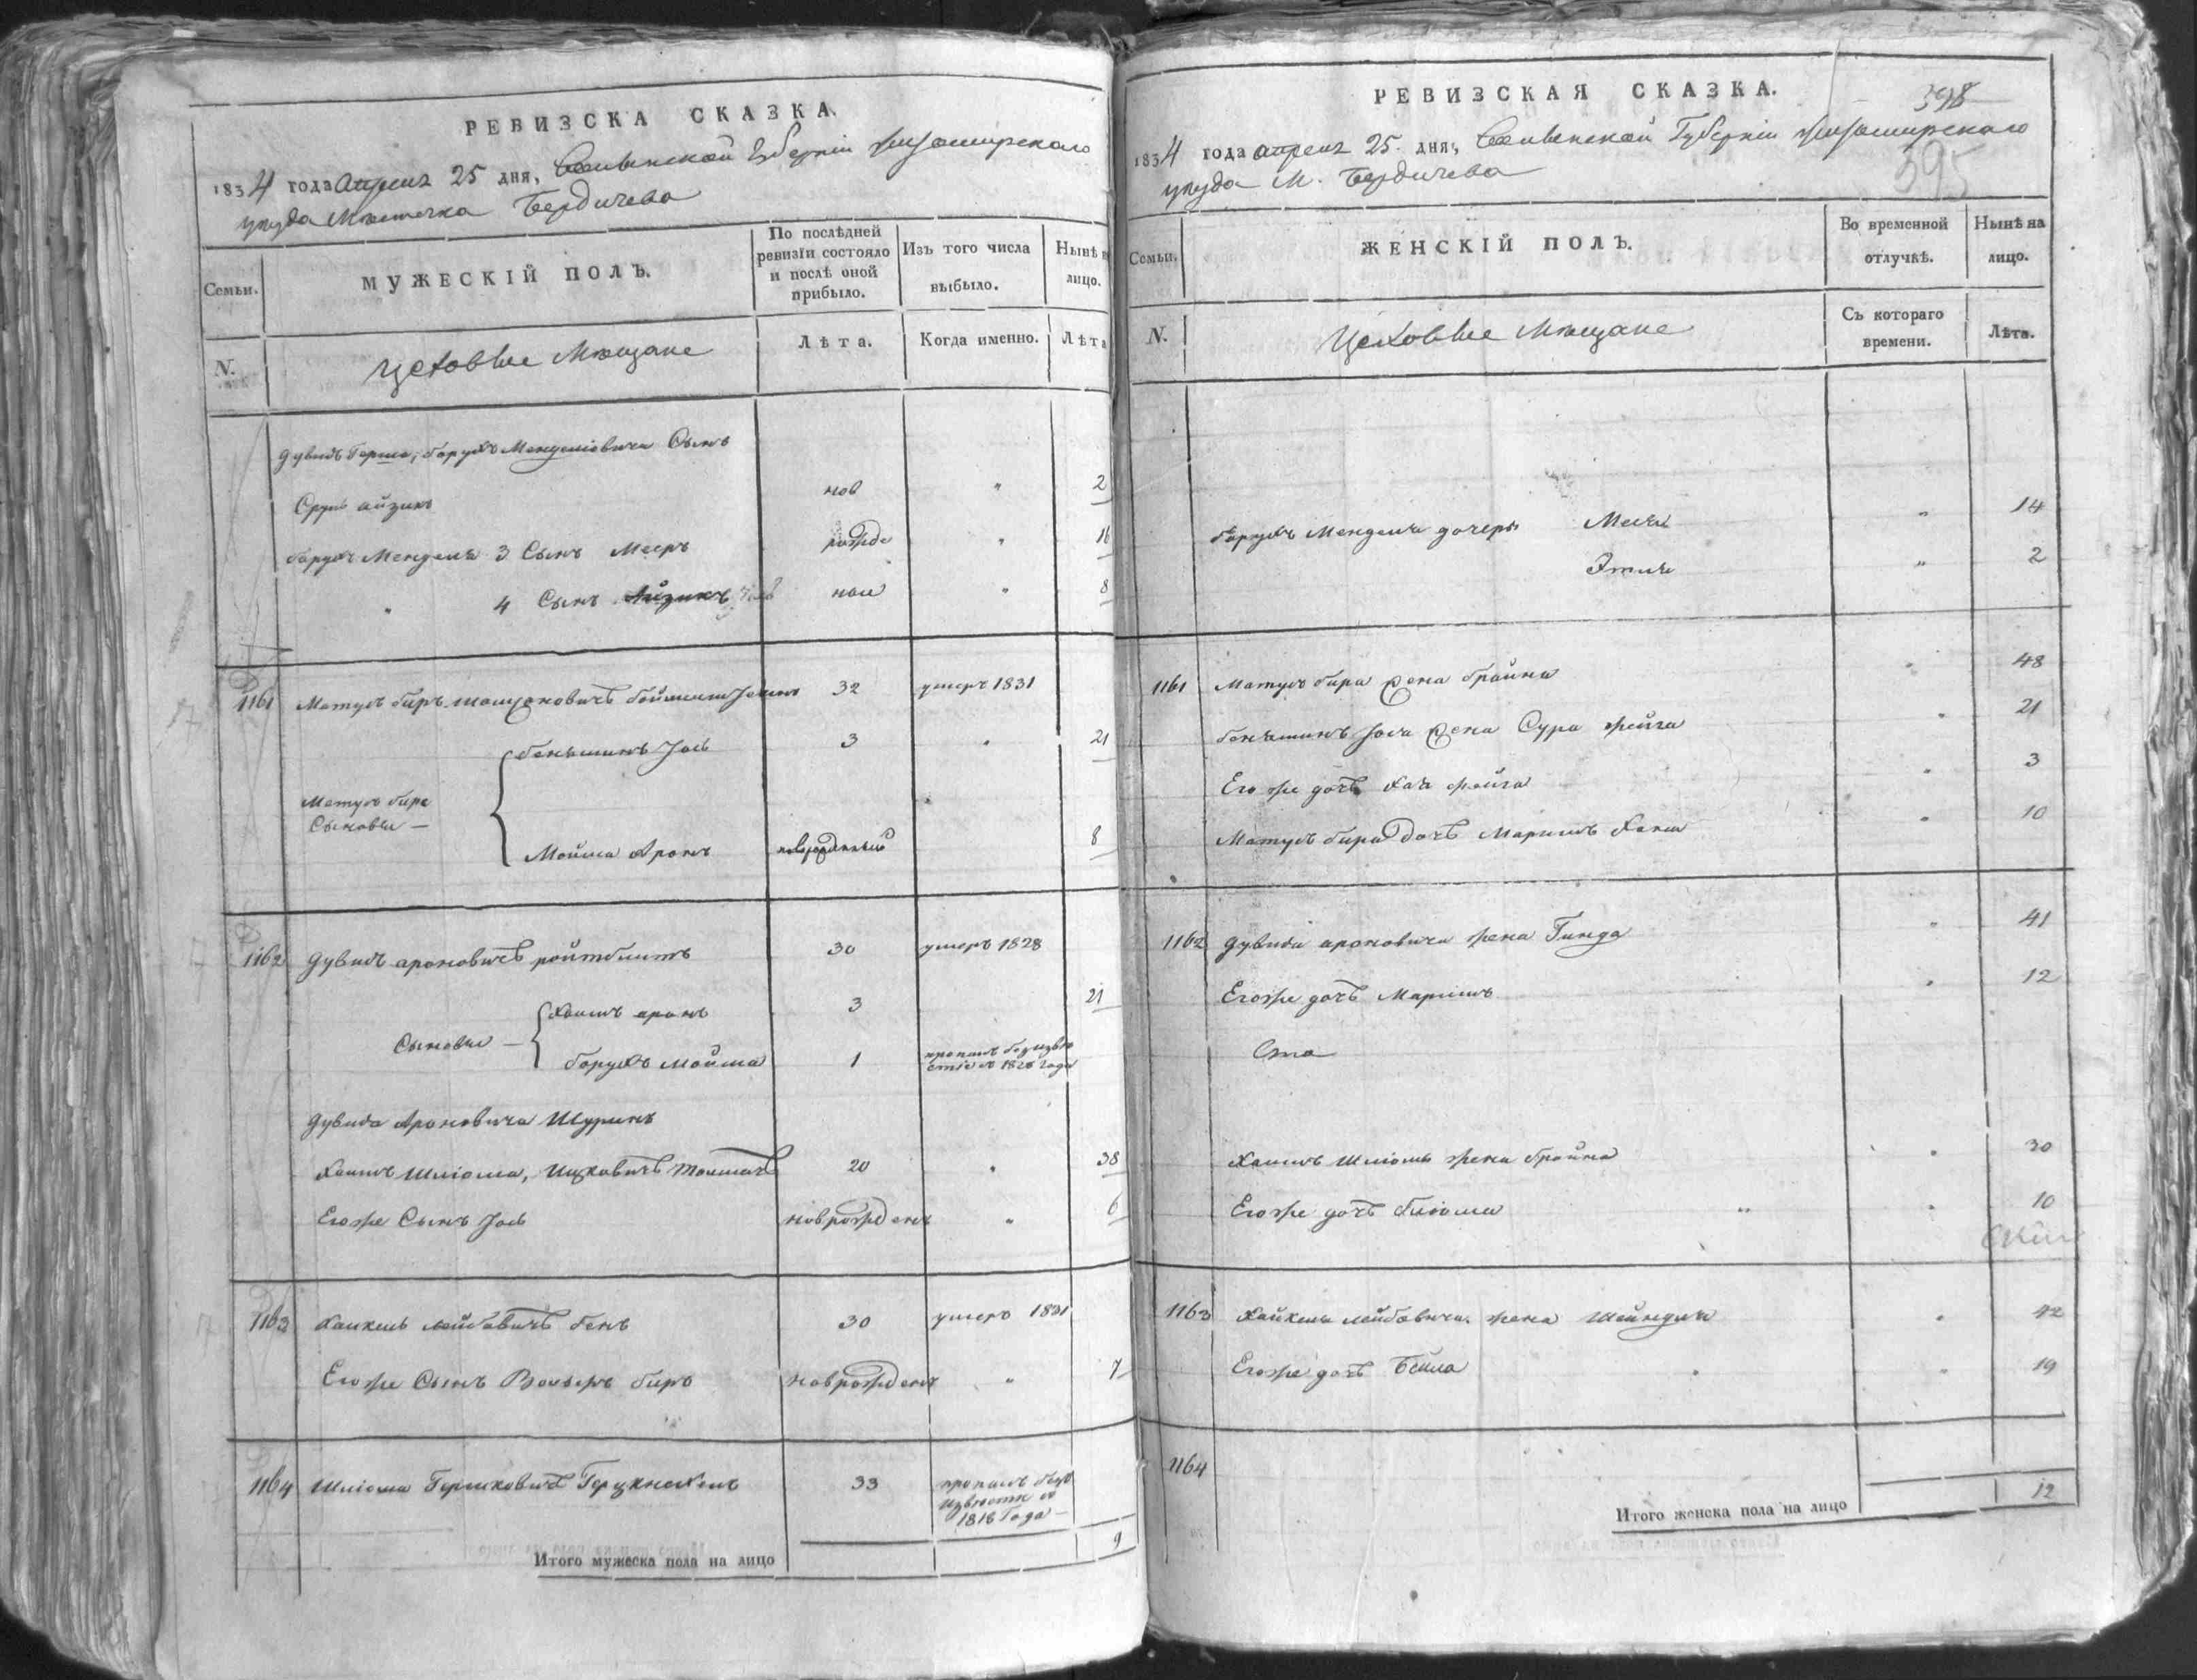 РЕВИЗСКА СКАЗКА.
1834 года апреля 25 дня, Волынской Губерніи Житомирскаго
уезда Мѣстечка Бердичева
Семьи.
МУЖЕСКІЙ ПОЛЪ.
По послѣдней ревизіи состояло и послѣ оной прибыло.
Изъ того числа выбыло.
Нынѣ на лицо.
N.
Цеховые Мещане
Лѣта.
Когда именно.
Лѣта
Дувидъ Герша, Борухъ Менделіовича Сынъ
Сруль Айзикъ нов " 2
Борухъ Менделя 3 Сынъ Мееръ рожде " 16
" 4 Сынъ Айзикъ ные " 8
1161 Матусъ Биръ Мошковичъ 32 умеръ 1831
Беньминъ Іось 3 " 21
Матусъ Бира
Сыновья —
Мойша Аронъ новрожденный 8
1162 Дувидъ Ароновичъ Ройтблитъ 30 умеръ 1828
Хаимъ Аронъ 3 21
Сыновья —
Борухъ Мойша 1 пропалъ безызвѣстіе в 1828 года
Дувида Ароновича Шуринъ
Хаимъ Шліома, Ицковичъ 20 " 38
Егоже Сынъ Іось новрожденъ " 6
1163 Хаикель Лейбовичъ Бенъ 30 умеръ 1831
Егоже Сынъ Вольфъ Биръ новрожденъ " 7
1164 Шліома Гершковичъ 33 пропалъ безъ извѣсти в 1816 Года —
Итого мужеска пола на лицо 9
РЕВИЗСКАЯ СКАЗКА.
398
1834 года апреля 25 дня, Волынской Губерніи Житомирскаго
уезда М. Бердичева
395
Семьи.
ЖЕНСКІЙ ПОЛЪ.
Во временной отлучкѣ.
Нынѣ на лицо.
N.
Цеховые Мещане
Съ котораго времени.
Лѣта.
Борухъ Менделя дочеры " 14
Этля " 2
1161 Матусъ Бира Жена Брайна " 48
Беньминъ Іося Жена Сура Фейга " 21
Его же дочъ Хая Фейга " 3
Матусъ Бира дочъ Маріимъ Хана " 10
1162 Дувида Ароновича жена Гинда " 41
Егоже дочъ Маріимъ " 12
Хаимъ Шліомы жена Брайна " 30
Егоже дочъ Бліома " " 10
1163 Хайкеля Лейбовича жена Шейндля " 42
Егоже дочъ Бейла " " 19
1164
Итого женска пола на лицо 12